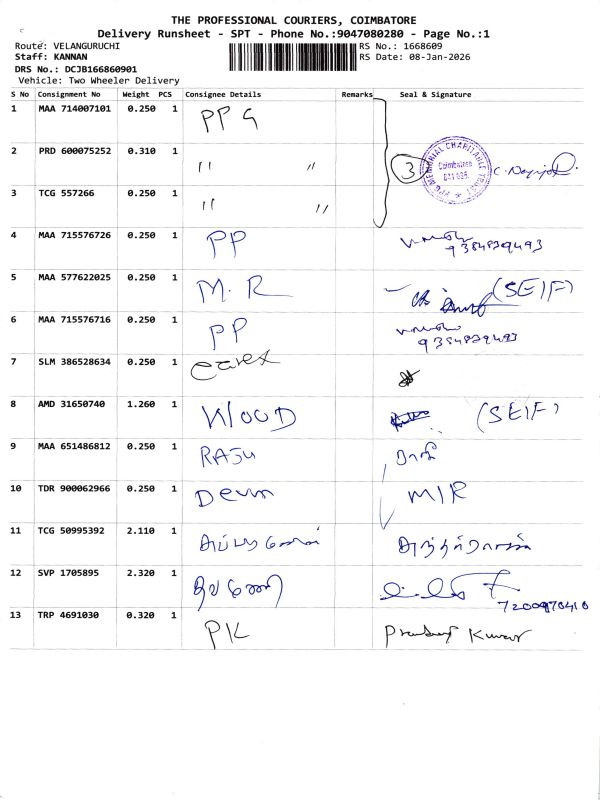 THE PROFESSIONAL COURIERS, COIMBATORE
Delivery Runsheet - SPT - Phone No.:9047080280 - Page No.:1
Route: VELANGURUCHI
RS No.: 1668609
Staff: KANNAN
RS Date: 08-Jan-2026
DRS No.: DCJB166860901
Vehicle: Two Wheeler Delivery
S No Consignment No Weight PCS Consignee Details Remarks Seal & Signature
1 MAA 714007101 0.250 1 PPG
2 PRD 600075252 0.310 1 " " 3
3 TCG 557266 0.250 1 " "
4 MAA 715576726 0.250 1 PP
5 MAA 577622025 0.250 1 M.R (SEIF)
6 MAA 715576716 0.250 1 PP
7 SLM 386528634 0.250 1
8 AMD 31650740 1.260 1 WOOD (SEIF)
9 MAA 651486812 0.250 1 RAJU
10 TDR 900062966 0.250 1 MIR
11 TCG 50995392 2.110 1
12 SVP 1705895 2.320 1
13 TRP 4691030 0.320 1 PK Pradeep Kumar